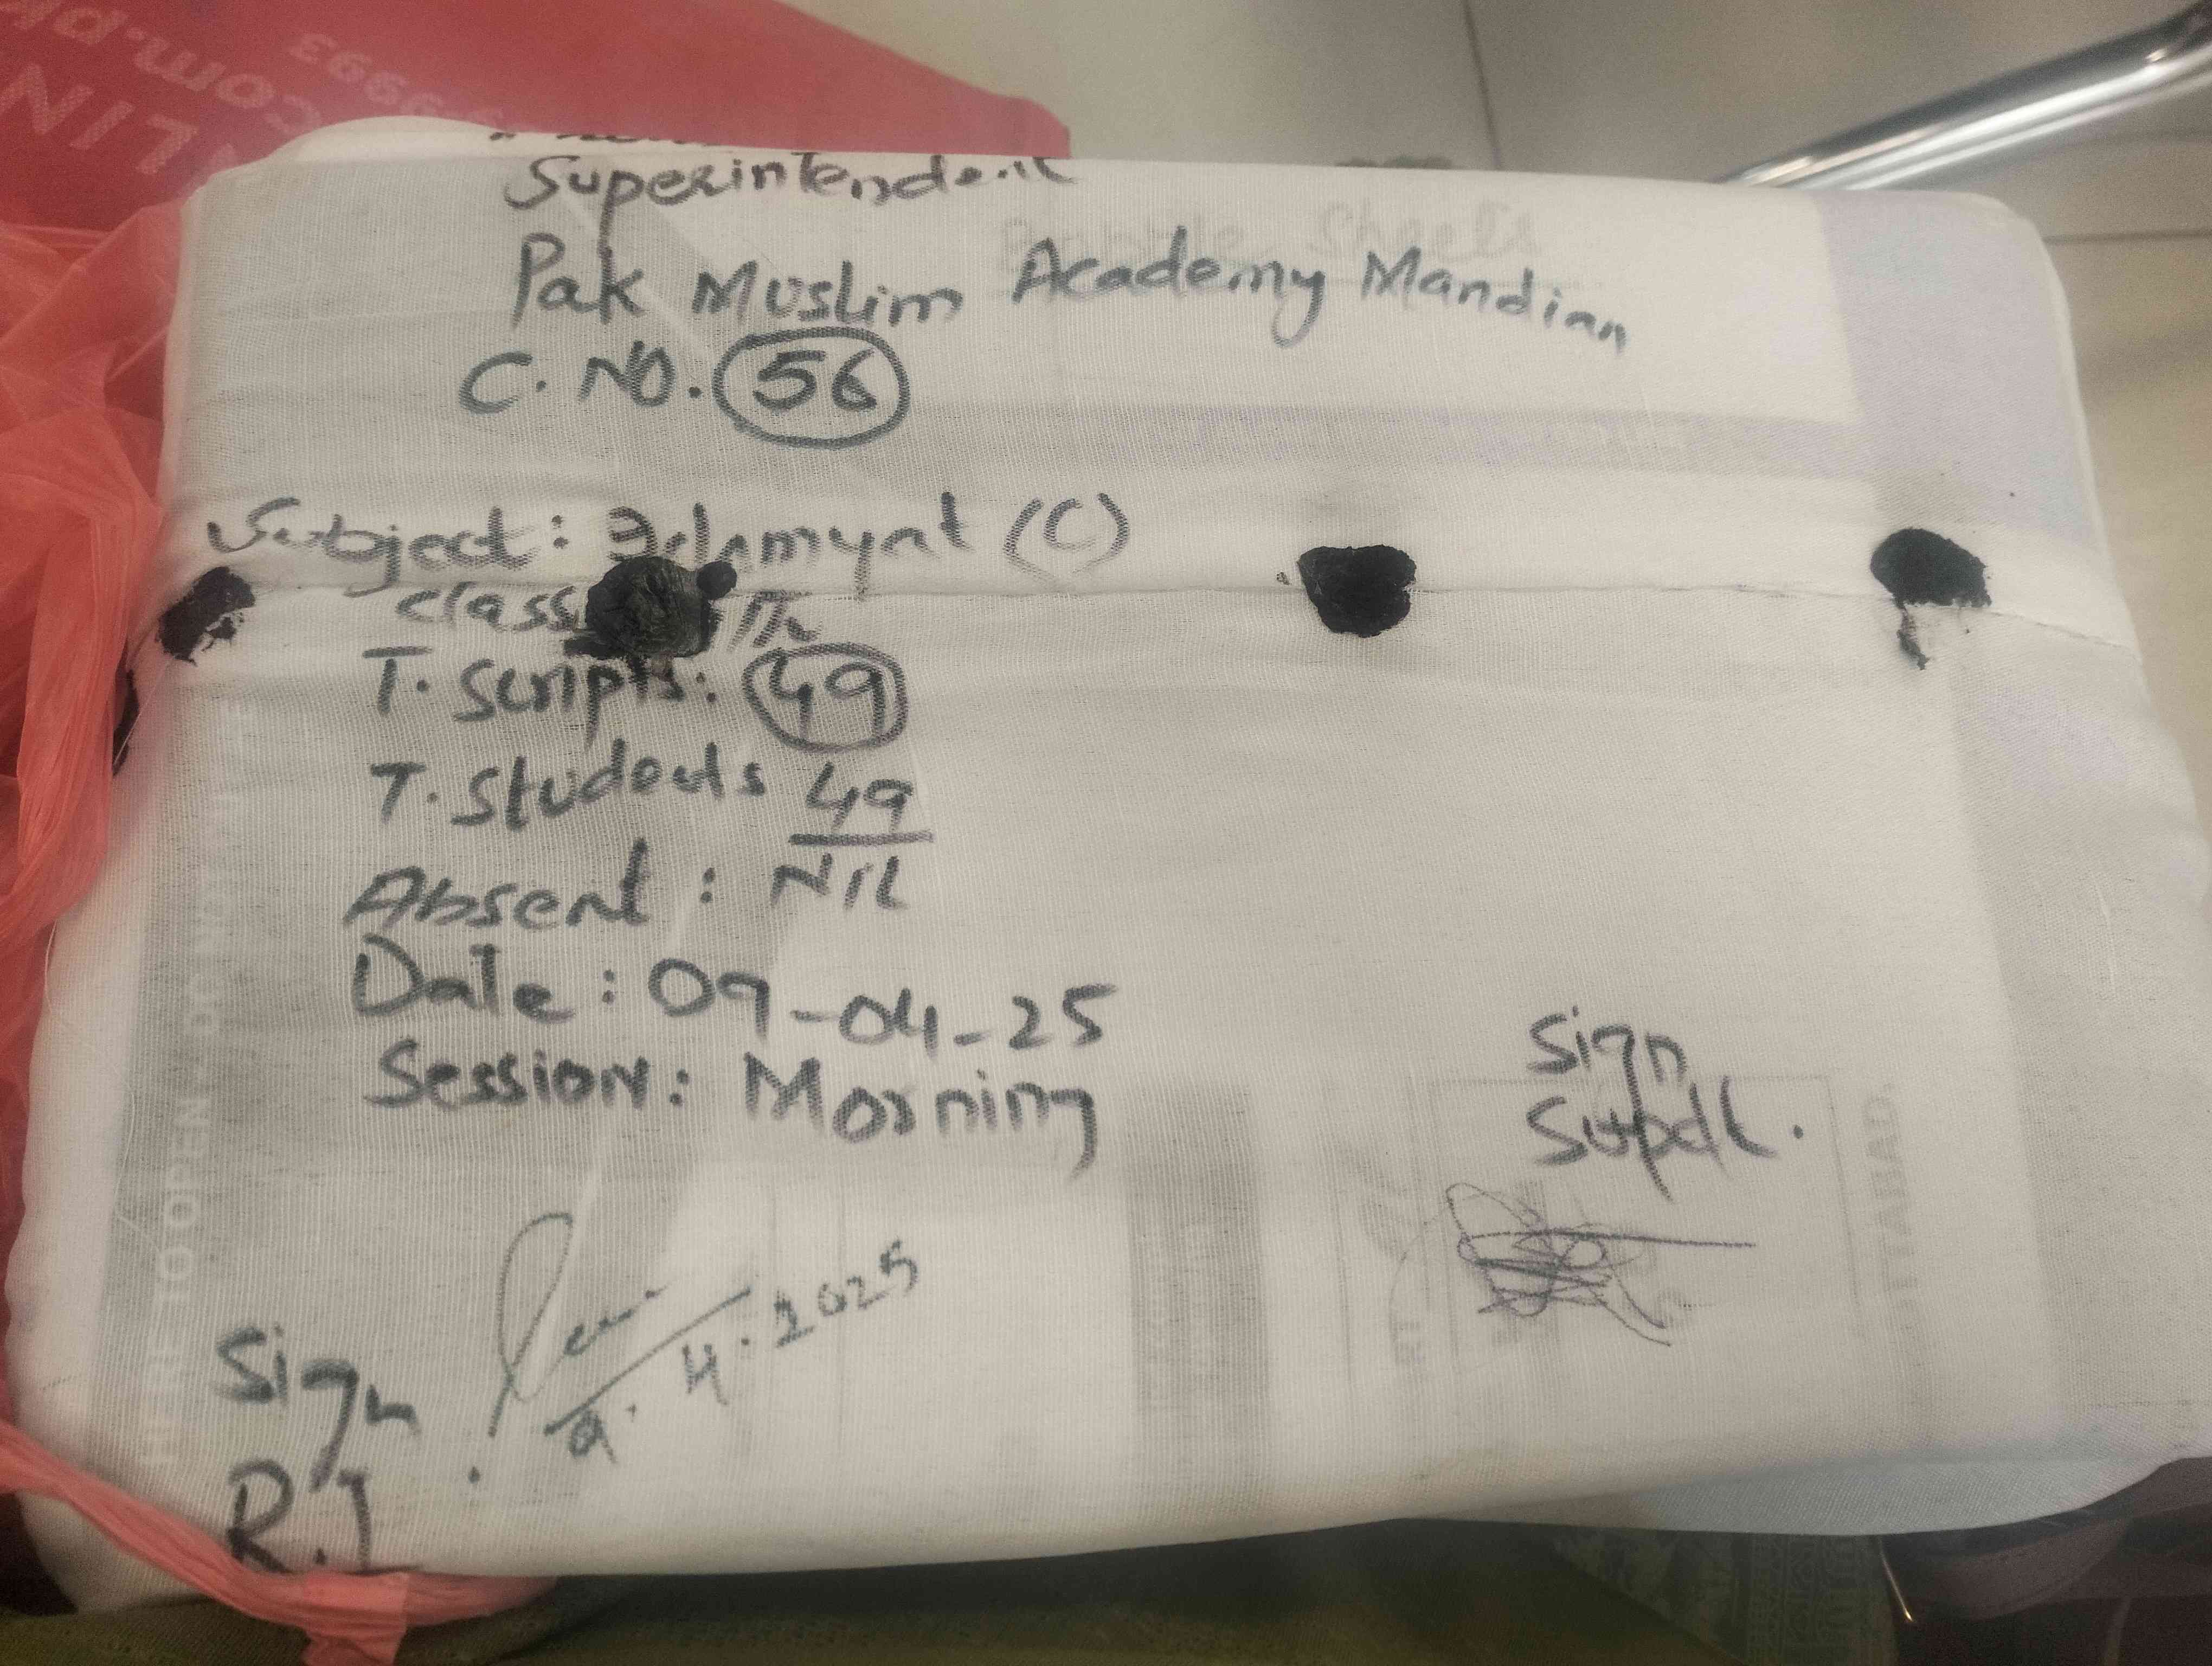 LIN
com.pk
Superintendent
Pak Muslim Academy Mandian
C. NO. 56
Subject: Islamyat (C)
Class
T. Scripts: 49
T. Students 49
Absent: Nil
Date: 09-04-25
Session: Morning
Sign
Supdt.
9.4.2025
Sign
R.I
HERE TO OPEN